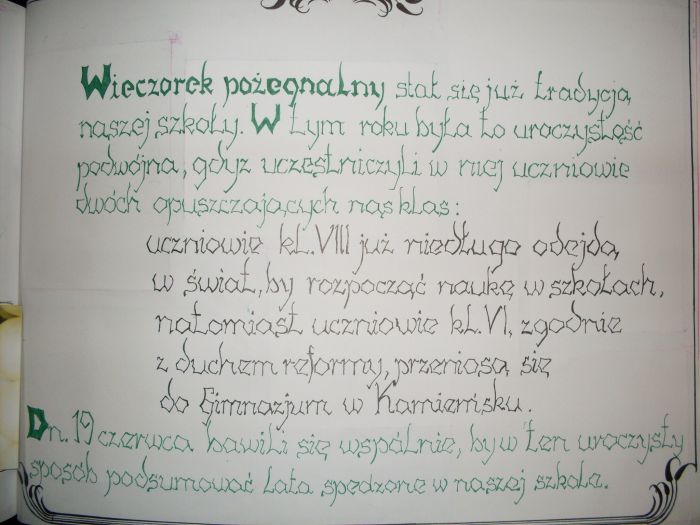 Wieczorek pożegnalny stał się już tradycją
naszej szkoły. W tym roku była to uroczystość
podwójna, gdyż uczestniczyli w niej uczniowie
dwóch opuszczających nas klas:
uczniowie kl. VIII już niedługo odejdą
w świat, by rozpocząć naukę w szkołach,
natomiast uczniowie kl. VI, zgodnie
z duchem reformy, przeniosą się
do Gimnazjum w Kamieńsku.
Dn. 19 czerwca bawili się wspólnie, by w ten uroczysty
sposób podsumować lata spędzone w naszej szkole.